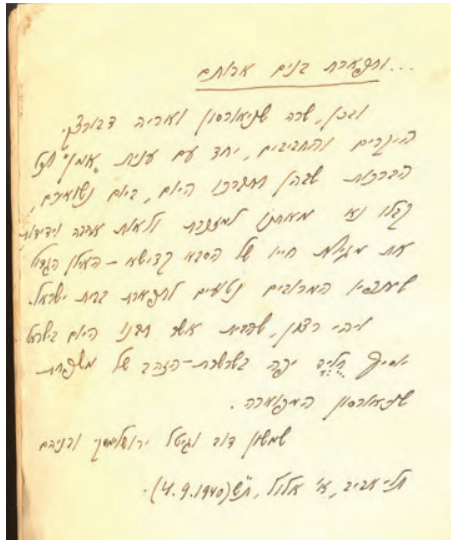 ...ותפארת בנים אבותם
ובכן, שרה שניאורסון ואריה
היקרים והחביבים, יחד עם ענית "אמן"
הברכות שבהן התברכו היום, ביום נשואיכם,
קבלו נא מאתנו למזכרת ולאות אהבה וידידות
את מגילת חייו של הסבא קדישא – האילן הגדול
שענפיו המרובים נטועים לתפארת בבית ישראל.
ויהי רצון, שהבית אשר היום בישראל
יוסיף חוליה יפה בשרשרת-הזהב של משפחת
שניאורסון המפוארה.
שמשון דוד וגיטל ירושלימסקי ובניהם
תל-אביב, א' אלול, ת"ש (4.9.1940).